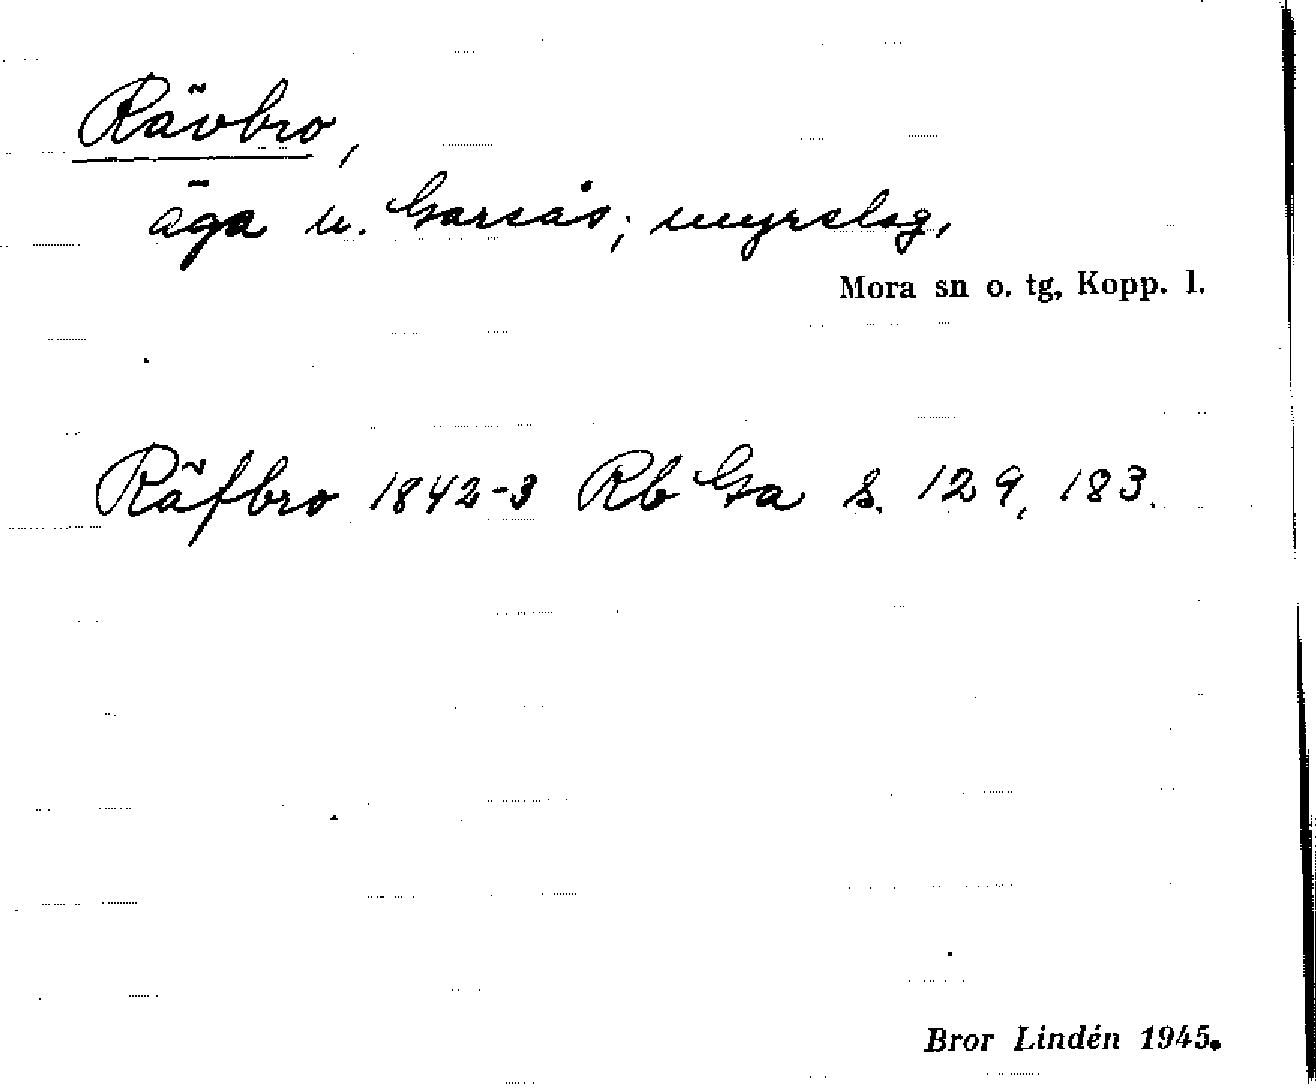 Rävbro,
äga u. Garsås; myrslog,
Mora sn o. tg, Kopp. l.
Räfbro 1842-3 Rb Ga s. 129, 183.
Bror Lindén 1945.